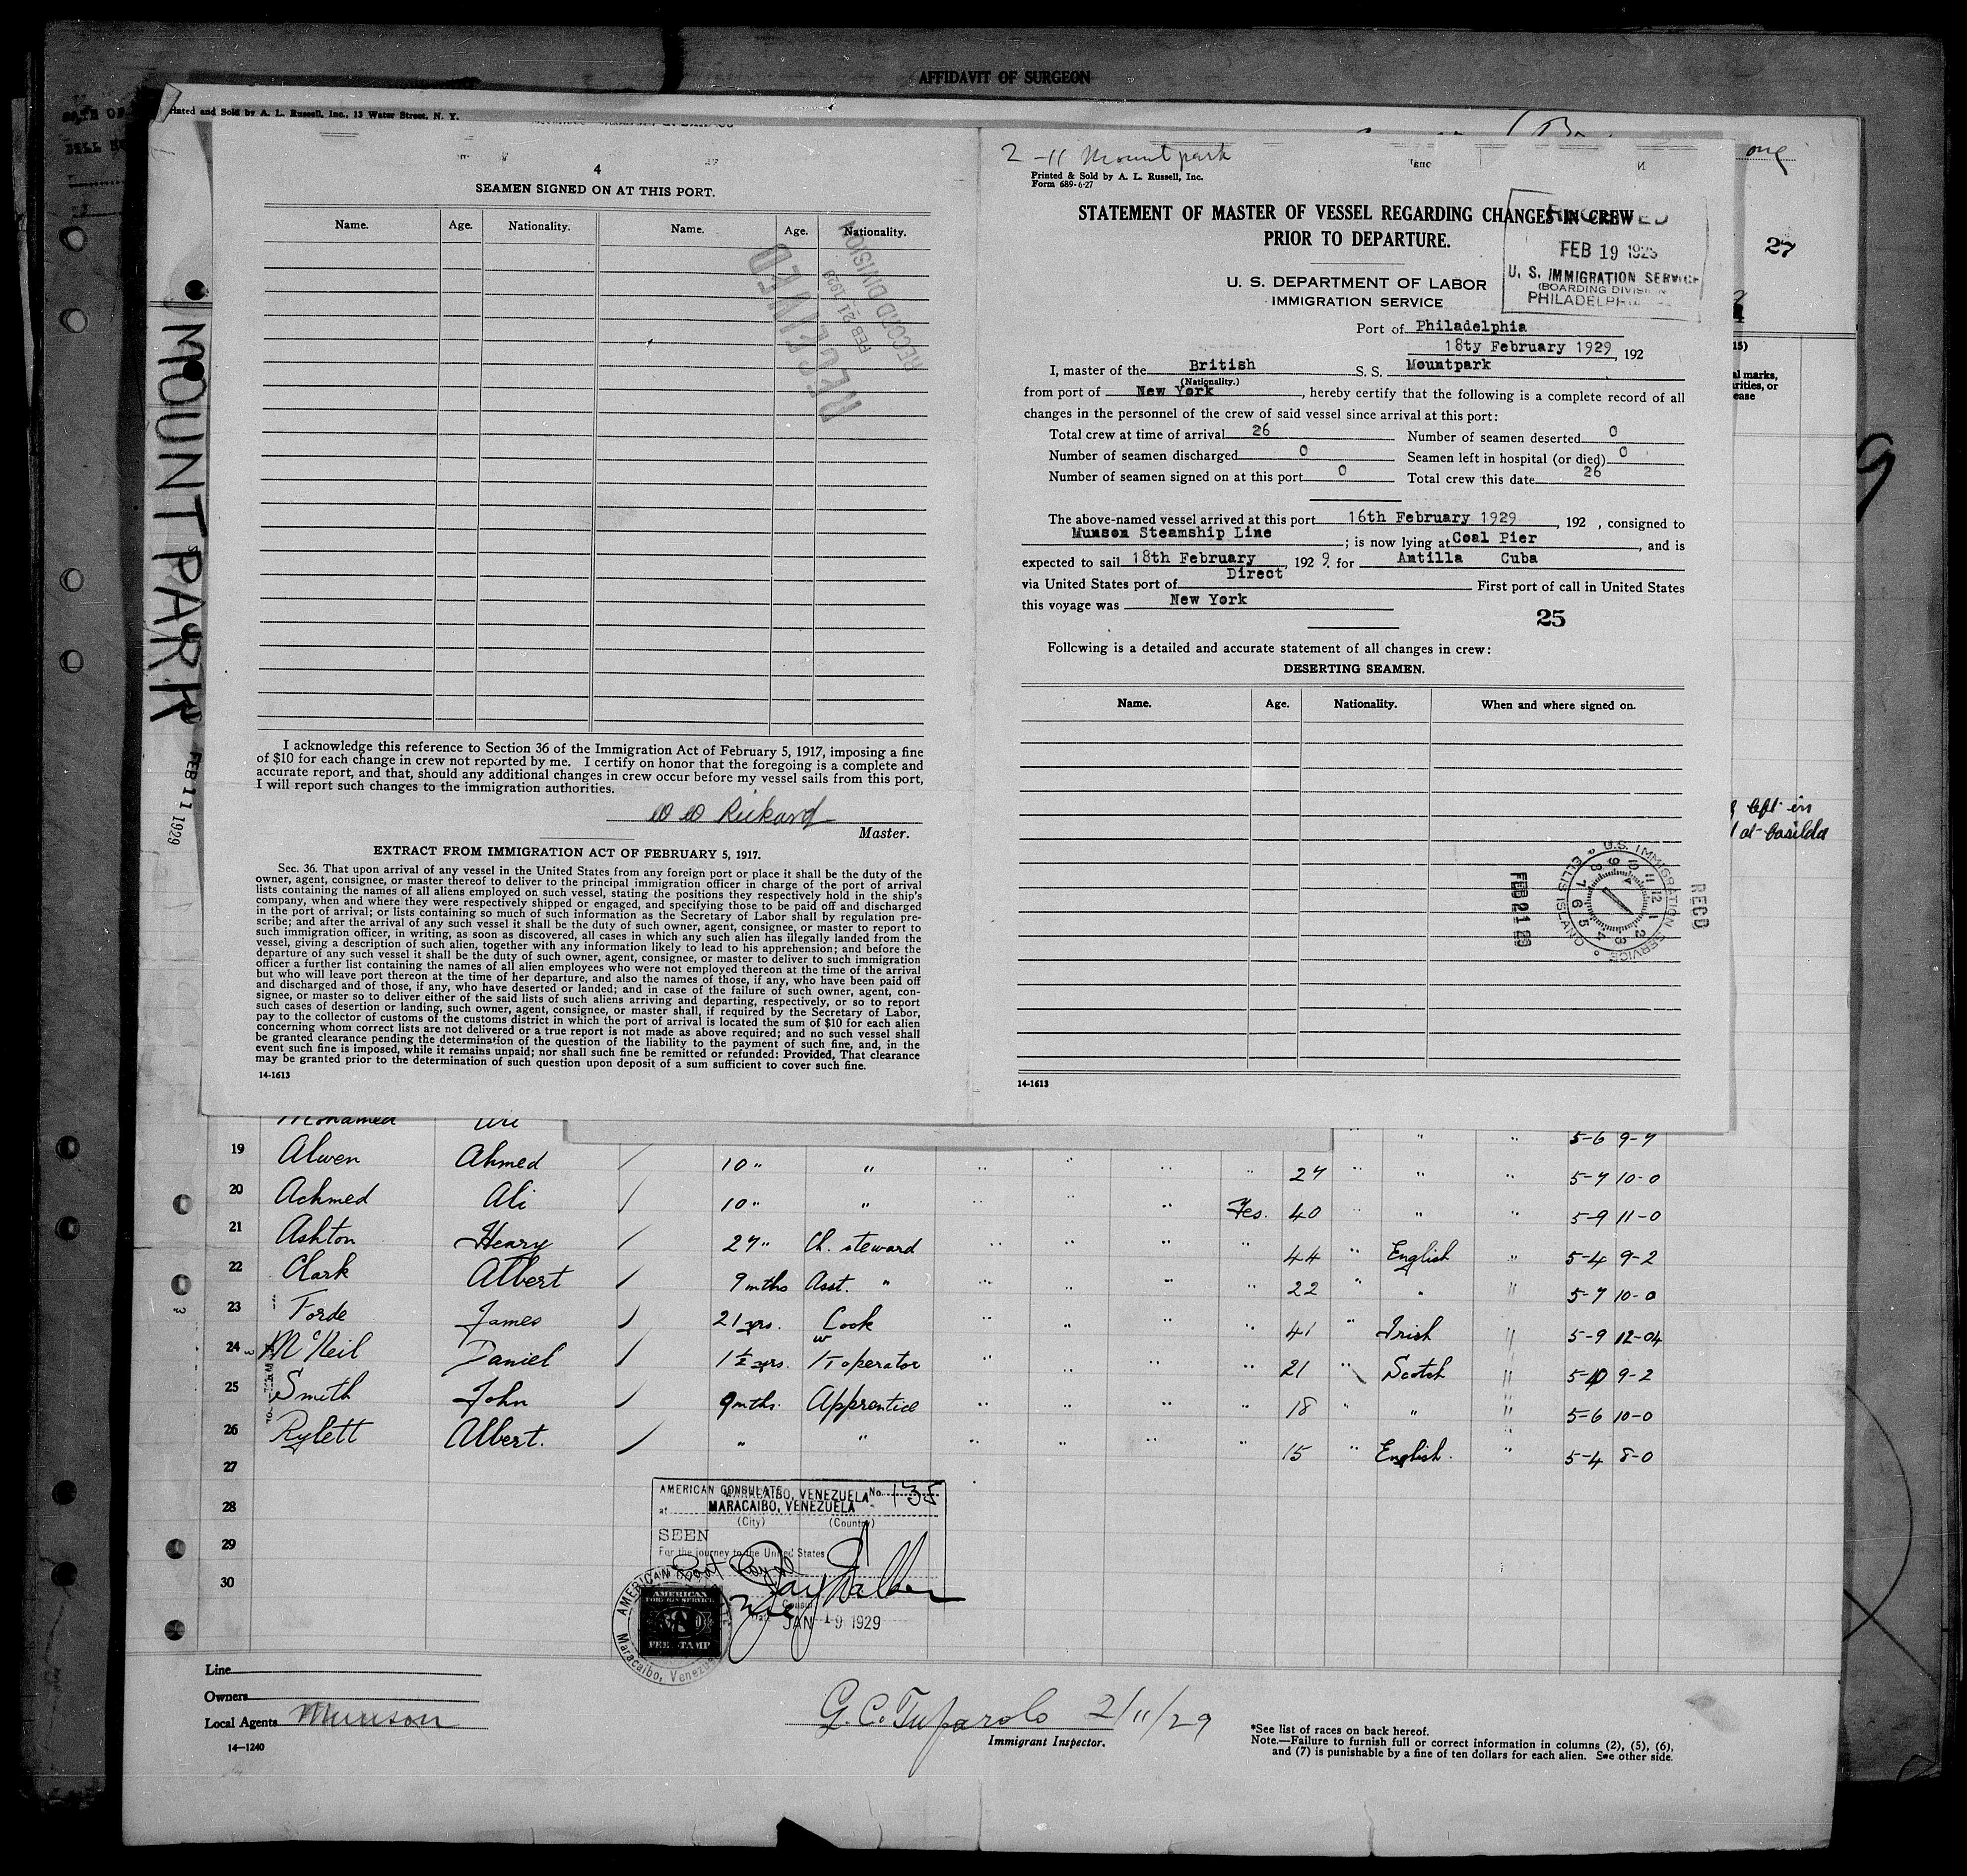 AFFIDAVIT OF SURGEON
Printed and Sold by A. L. Russell, Inc., 13 Water Street, N. Y.
MOUNT PARK
FEB 11 1929
4
SEAMEN SIGNED ON AT THIS PORT.
Name. Age. Nationality. Name. Age. Nationality.
RECEIVED
FEB 21 1929
RECORD DIVISION
I acknowledge this reference to Section 36 of the Immigration Act of February 5, 1917, imposing a fine
of $10 for each change in crew not reported by me. I certify on honor that the foregoing is a complete and
accurate report, and that, should any additional changes in crew occur before my vessel sails from this port,
I will report such changes to the immigration authorities.
W W Rickard
Master.
EXTRACT FROM IMMIGRATION ACT OF FEBRUARY 5, 1917.
Sec. 36. That upon arrival of any vessel in the United States from any foreign port or place it shall be the duty of the
owner, agent, consignee, or master thereof to deliver to the principal immigration officer in charge of the port of arrival
lists containing the names of all aliens employed on such vessel, stating the positions they respectively hold in the ship's
company, when and where they were respectively shipped or engaged, and specifying those to be paid off and discharged
in the port of arrival; or lists containing so much of such information as the Secretary of Labor shall by regulation pre-
scribe; and after the arrival of any such vessel it shall be the duty of such owner, agent, consignee, or master to report to
such immigration officer, in writing, as soon as discovered, all cases in which any such alien has illegally landed from the
vessel, giving a description of such alien, together with any information likely to lead to his apprehension; and before the
departure of any such vessel it shall be the duty of such owner, agent, consignee, or master to deliver to such immigration
officer a further list containing the names of all alien employees who were not employed thereon at the time of the arrival
but who will leave port thereon at the time of her departure, and also the names of those, if any, who have been paid off
and discharged and of those, if any, who have deserted or landed; and in case of the failure of such owner, agent, con-
signee, or master so to deliver either of the said lists of such aliens arriving and departing, respectively, or so to report
such cases of desertion or landing, such owner, agent, consignee, or master shall, if required by the Secretary of Labor,
pay to the collector of customs of the customs district in which the port of arrival is located the sum of $10 for each alien
concerning whom correct lists are not delivered or a true report is not made as above required; and no such vessel shall
be granted clearance pending the determination of the question of the liability to the payment of such fine, and, in the
event such fine is imposed, while it remains unpaid; nor shall such fine be remitted or refunded: Provided, That clearance
may be granted prior to the determination of such question upon deposit of a sum sufficient to cover such fine.
14-1613
2-11 Mountpark
Printed & Sold by A. L. Russell, Inc.
Form 689-6-27
STATEMENT OF MASTER OF VESSEL REGARDING CHANGES IN CREW
PRIOR TO DEPARTURE.
RECEIVED
FEB 19 1929
U. S. IMMIGRATION SERVICE
(BOARDING DIVISION
PHILADELPHIA
U. S. DEPARTMENT OF LABOR
IMMIGRATION SERVICE
Port of Philadelphia
18ty February 1929, 192
I, master of the British S. S. Mountpark
(Nationality.)
from port of New York, hereby certify that the following is a complete record of all
changes in the personnel of the crew of said vessel since arrival at this port:
Total crew at time of arrival 26 Number of seamen deserted 0
Number of seamen discharged 0 Seamen left in hospital (or died) 0
Number of seamen signed on at this port 0 Total crew this date 26
The above-named vessel arrived at this port 16th February 1929, 192 , consigned to
Munson Steamship Line; is now lying at Coal Pier, and is
expected to sail 18th February, 192 9 for Antilla Cuba
via United States port of Direct First port of call in United States
this voyage was New York
25
Following is a detailed and accurate statement of all changes in crew:
DESERTING SEAMEN.
Name. Age. Nationality. When and where signed on.
FEB 21 29
U.S. IMMIGRATION SERVICE ELLIS ISLAND
RECD
14-1613
one
27
15)
al marks,
rities, or
ease
left in
at Casilda
Mohamed 5-6 9-7
19 Alwen Ahmed 10 " " 27 " " " 5-7 10-0
20 Achmed Ali 10 " " " Yes. 40 " " " 5-9 11-0
21 Ashton Henry 27 " Ch. steward " " " " 44 " English " 5-4 9-2
22 Clark Albert 9 mths Asst. " " " " " 22 " " " 5-7 10-0
23 Forde James 21 yrs. Cook " " " " 41 " Irish " 5-9 12-04
24 McNeil Daniel 1½ yrs. W/T operator " " " " 21 " Scotch " 5-10 9-2
25 Smith John 9 mths. Apprentice " " " " 18 " " " 5-6 10-0
26 Rylett Albert. " " " " " " 15 " English. " 5-4 8-0
27
28
29
30
AMERICAN CONSULATE No. 135
at MARACAIBO, VENEZUELA
(City) (Country)
SEEN
For the journey to the United States
Consul
JAN 19 1929
AMERICAN FOREIGN SERVICE
FEE STAMP
Maracaibo, Venezuela
Line
Owners
Local Agents Munson
14—1240
G. C. Tuparolo 2/11/29
Immigrant Inspector.
*See list of races on back hereof.
Note.—Failure to furnish full or correct information in columns (2), (5), (6),
and (7) is punishable by a fine of ten dollars for each alien. See other side.